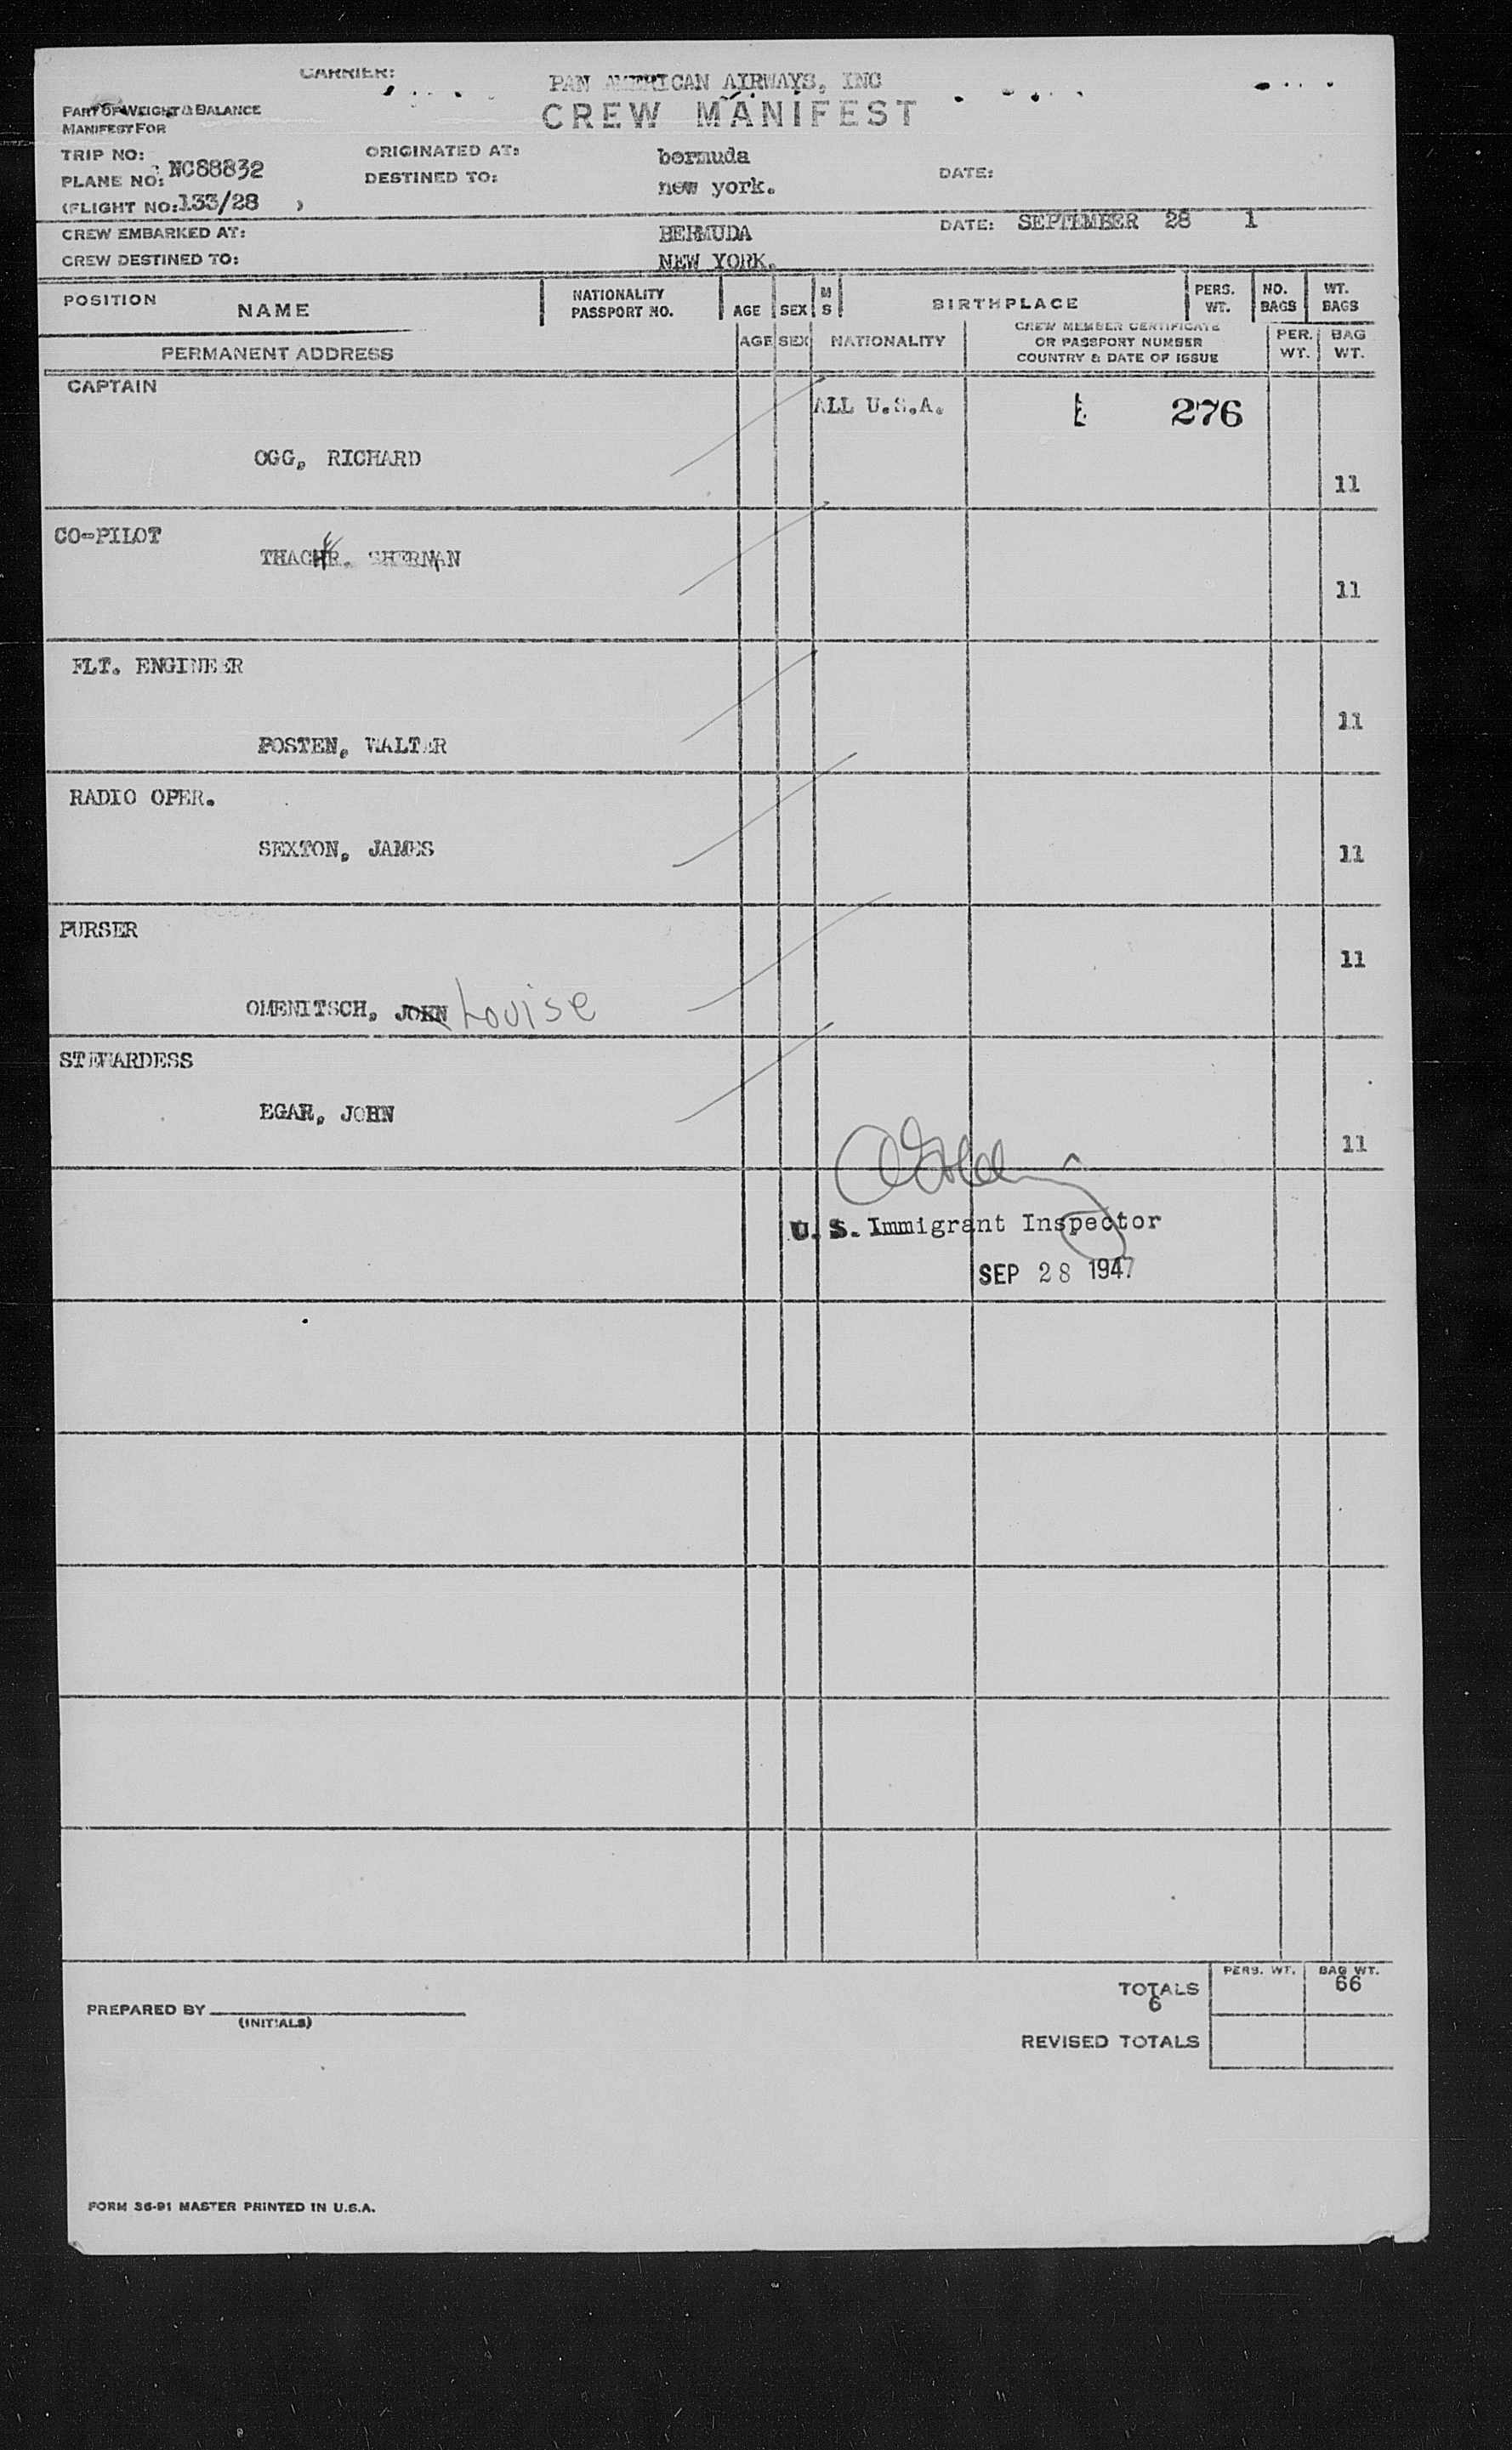 CARRIER: PAN AMERICAN AIRWAYS, INC
CREW MANIFEST
PART OF WEIGHT & BALANCE
MANIFEST FOR
TRIP NO:
PLANE NO: NC88832
(FLIGHT NO: 133/28 )
ORIGINATED AT: bermuda
DESTINED TO: new york.
DATE:
CREW EMBARKED AT: BERMUDA
DATE: SEPTEMBER 28 1
CREW DESTINED TO: NEW YORK.
POSITION NAME NATIONALITY PASSPORT NO. AGE SEX M S BIRTHPLACE PERS. WT. NO. BAGS WT. BAGS
PERMANENT ADDRESS AGE SEX NATIONALITY CREW MEMBER CERTIFICATE OR PASSPORT NUMBER COUNTRY & DATE OF ISSUE PER. WT. BAG WT.
CAPTAIN
ALL U.S.A. 276
OGG, RICHARD
11
CO-PILOT
SHERMAN
11
FLT. ENGINEER
11
POSTEN, WALTER
RADIO OPER.
SEXTON, JAMES 11
PURSER
11
OMENITSCH, JOHN Louise
STEWARDESS
EGAR, JOHN
11
U. S. Immigrant Inspector
SEP 28 1947
TOTALS 6
PERS. WT. BAG WT.
66
PREPARED BY
(INITIALS)
REVISED TOTALS
FORM 36-91 MASTER PRINTED IN U.S.A.